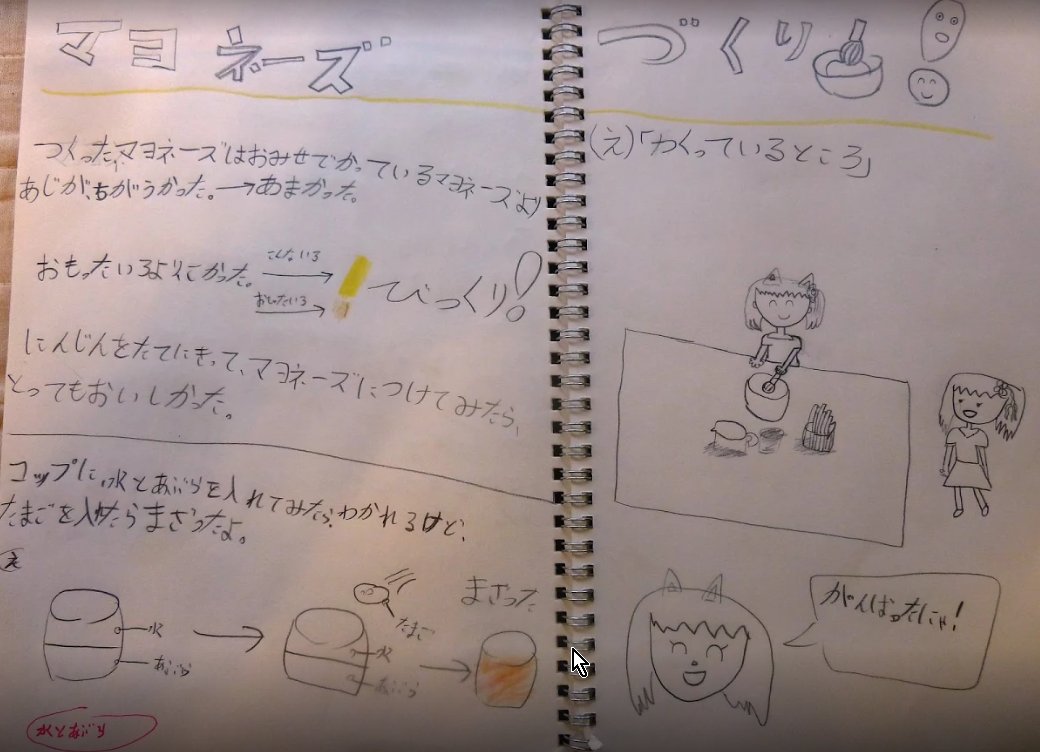 マヨネーズづくり
つくったマヨネーズはおみせでかっているマヨネーズより
あじがちがうかった。→あまかった。
おもったいろよりこかった。
こんないろ
おもったいろ
びっくり!
にんじんをたてにきって、マヨネーズにつけてみたら、
とってもおいしかった。
コップに、水とあぶらを入れてみたら、わかれるけど、
たまごを入れたらまざったよ。
え
水
あぶら
たまご
水
あぶら
まざった
水とあぶら
(え)「つくっているところ」
がんばったにゃ!